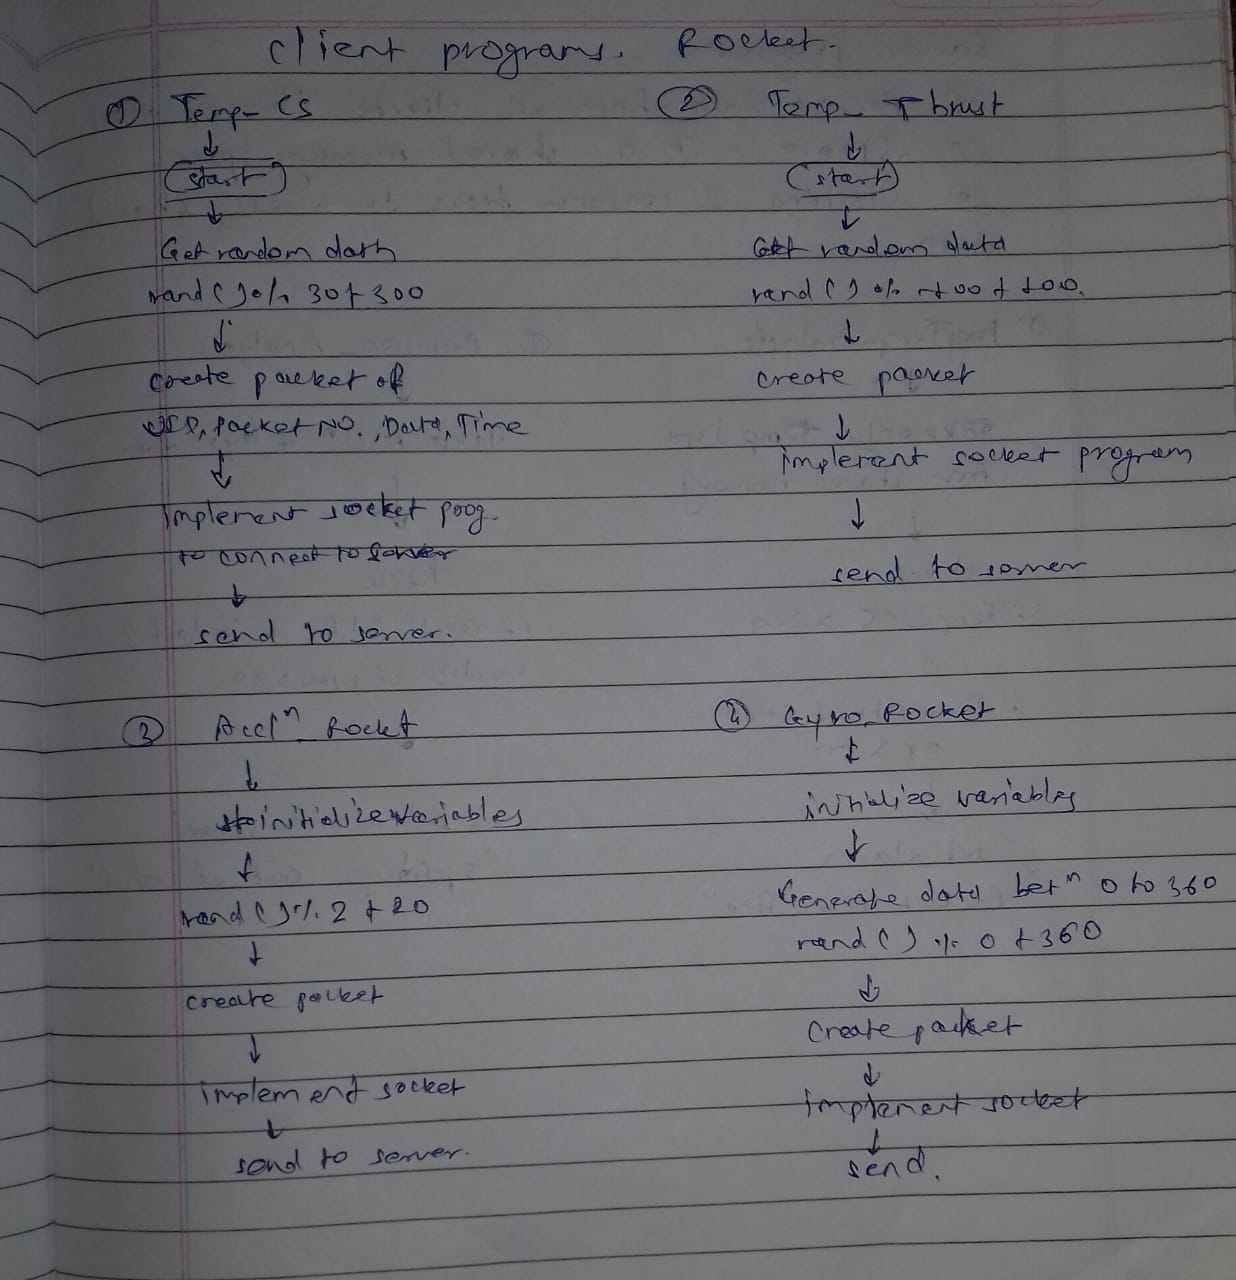 client programs. Rocket.
① Temp_CS
↓
start
↓
Get random data
rand()% 30+300
↓
create packet of
Packet NO., Data, Time
↓
implement socket prog.
to connect to server
↓
send to server.
② Temp_Thrust
↓
start
↓
Get random data
rand() %
↓
create packet
↓
implement socket program
↓
send to server
③ Acclⁿ_Rocket
↓
initialize variables
↓
rand()% 2 + 20
↓
create packet
↓
implement socket
↓
send to server.
④ Gyro_Rocket
↓
initialize variables
↓
Generate data betⁿ 0 to 360
rand() % 0 + 360
↓
Create packet
↓
implement socket
↓
send.